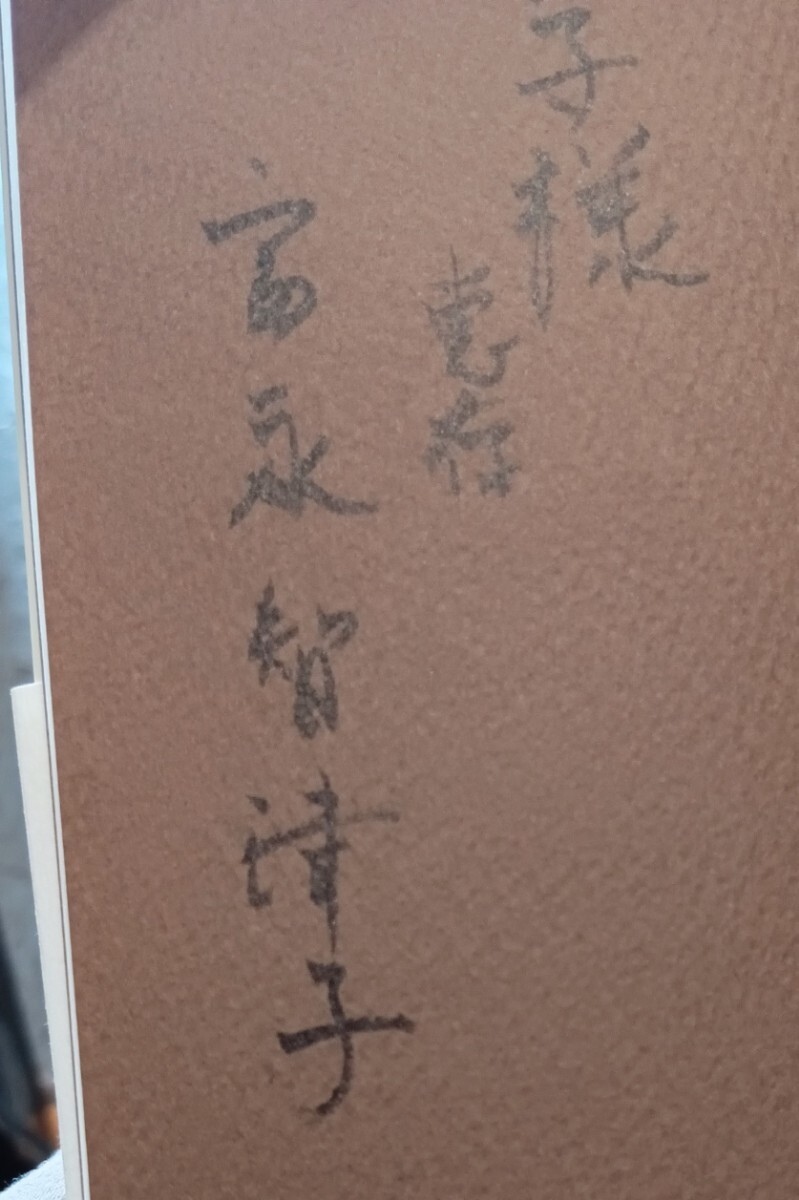 子様
恵存
富永智津子